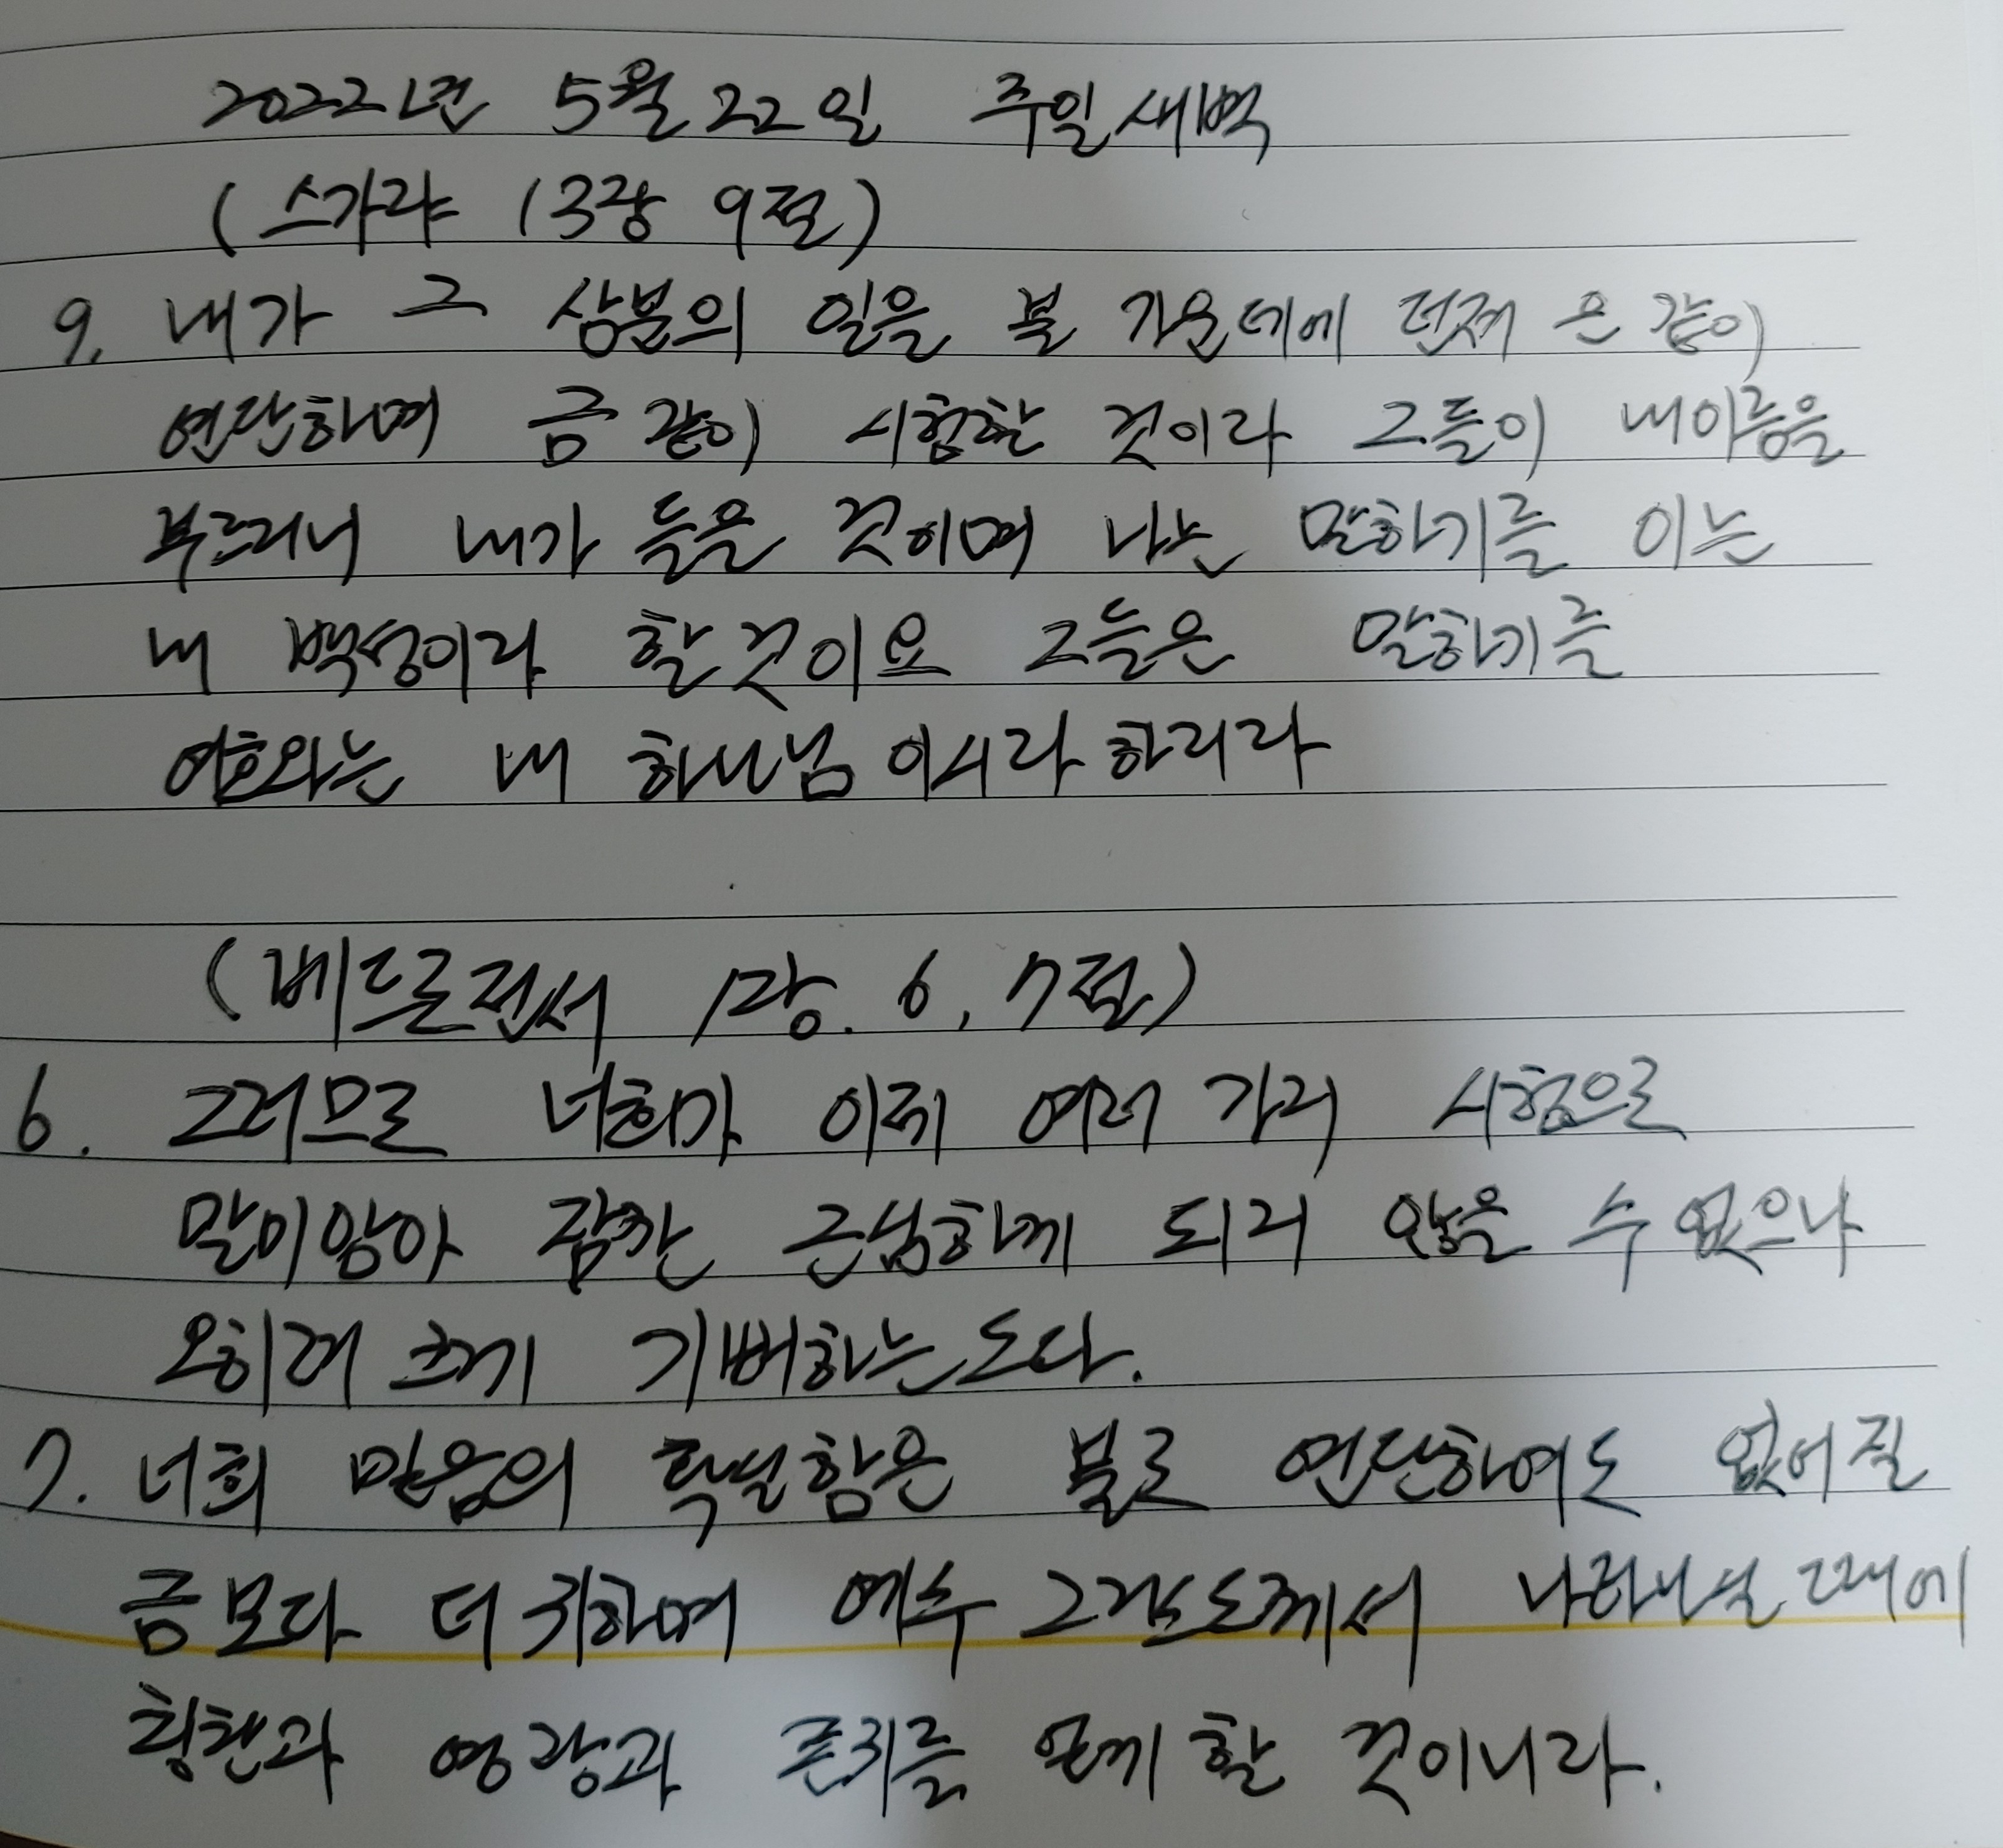 2022년 5월 22일 주일새벽
(스가랴 13장 9절)
9. 내가 그 삼분의 일을 불 가운데에 던져 은 같이
연단하며 금 같이 시험할 것이라 그들이 내이름을
부르리니 내가 들을 것이며 나는 말하기를 이는
내 백성이라 할것이요 그들은 말하기를
여호와는 내 하나님 이시라 하리라
(베드로전서 1장. 6, 7절)
6. 그러므로 너희가 이제 여러 가지 시험으로
말미암아 잠깐 근심하게 되지 않을 수 없으나
오히려 크게 기뻐하는도다.
7. 너희 믿음의 확실함은 불로 연단하여도 없어질
금보다 더 귀하며 예수 그리스도께서 나타나실 때에
칭찬과 영광과 존귀를 얻게 할 것이니라.